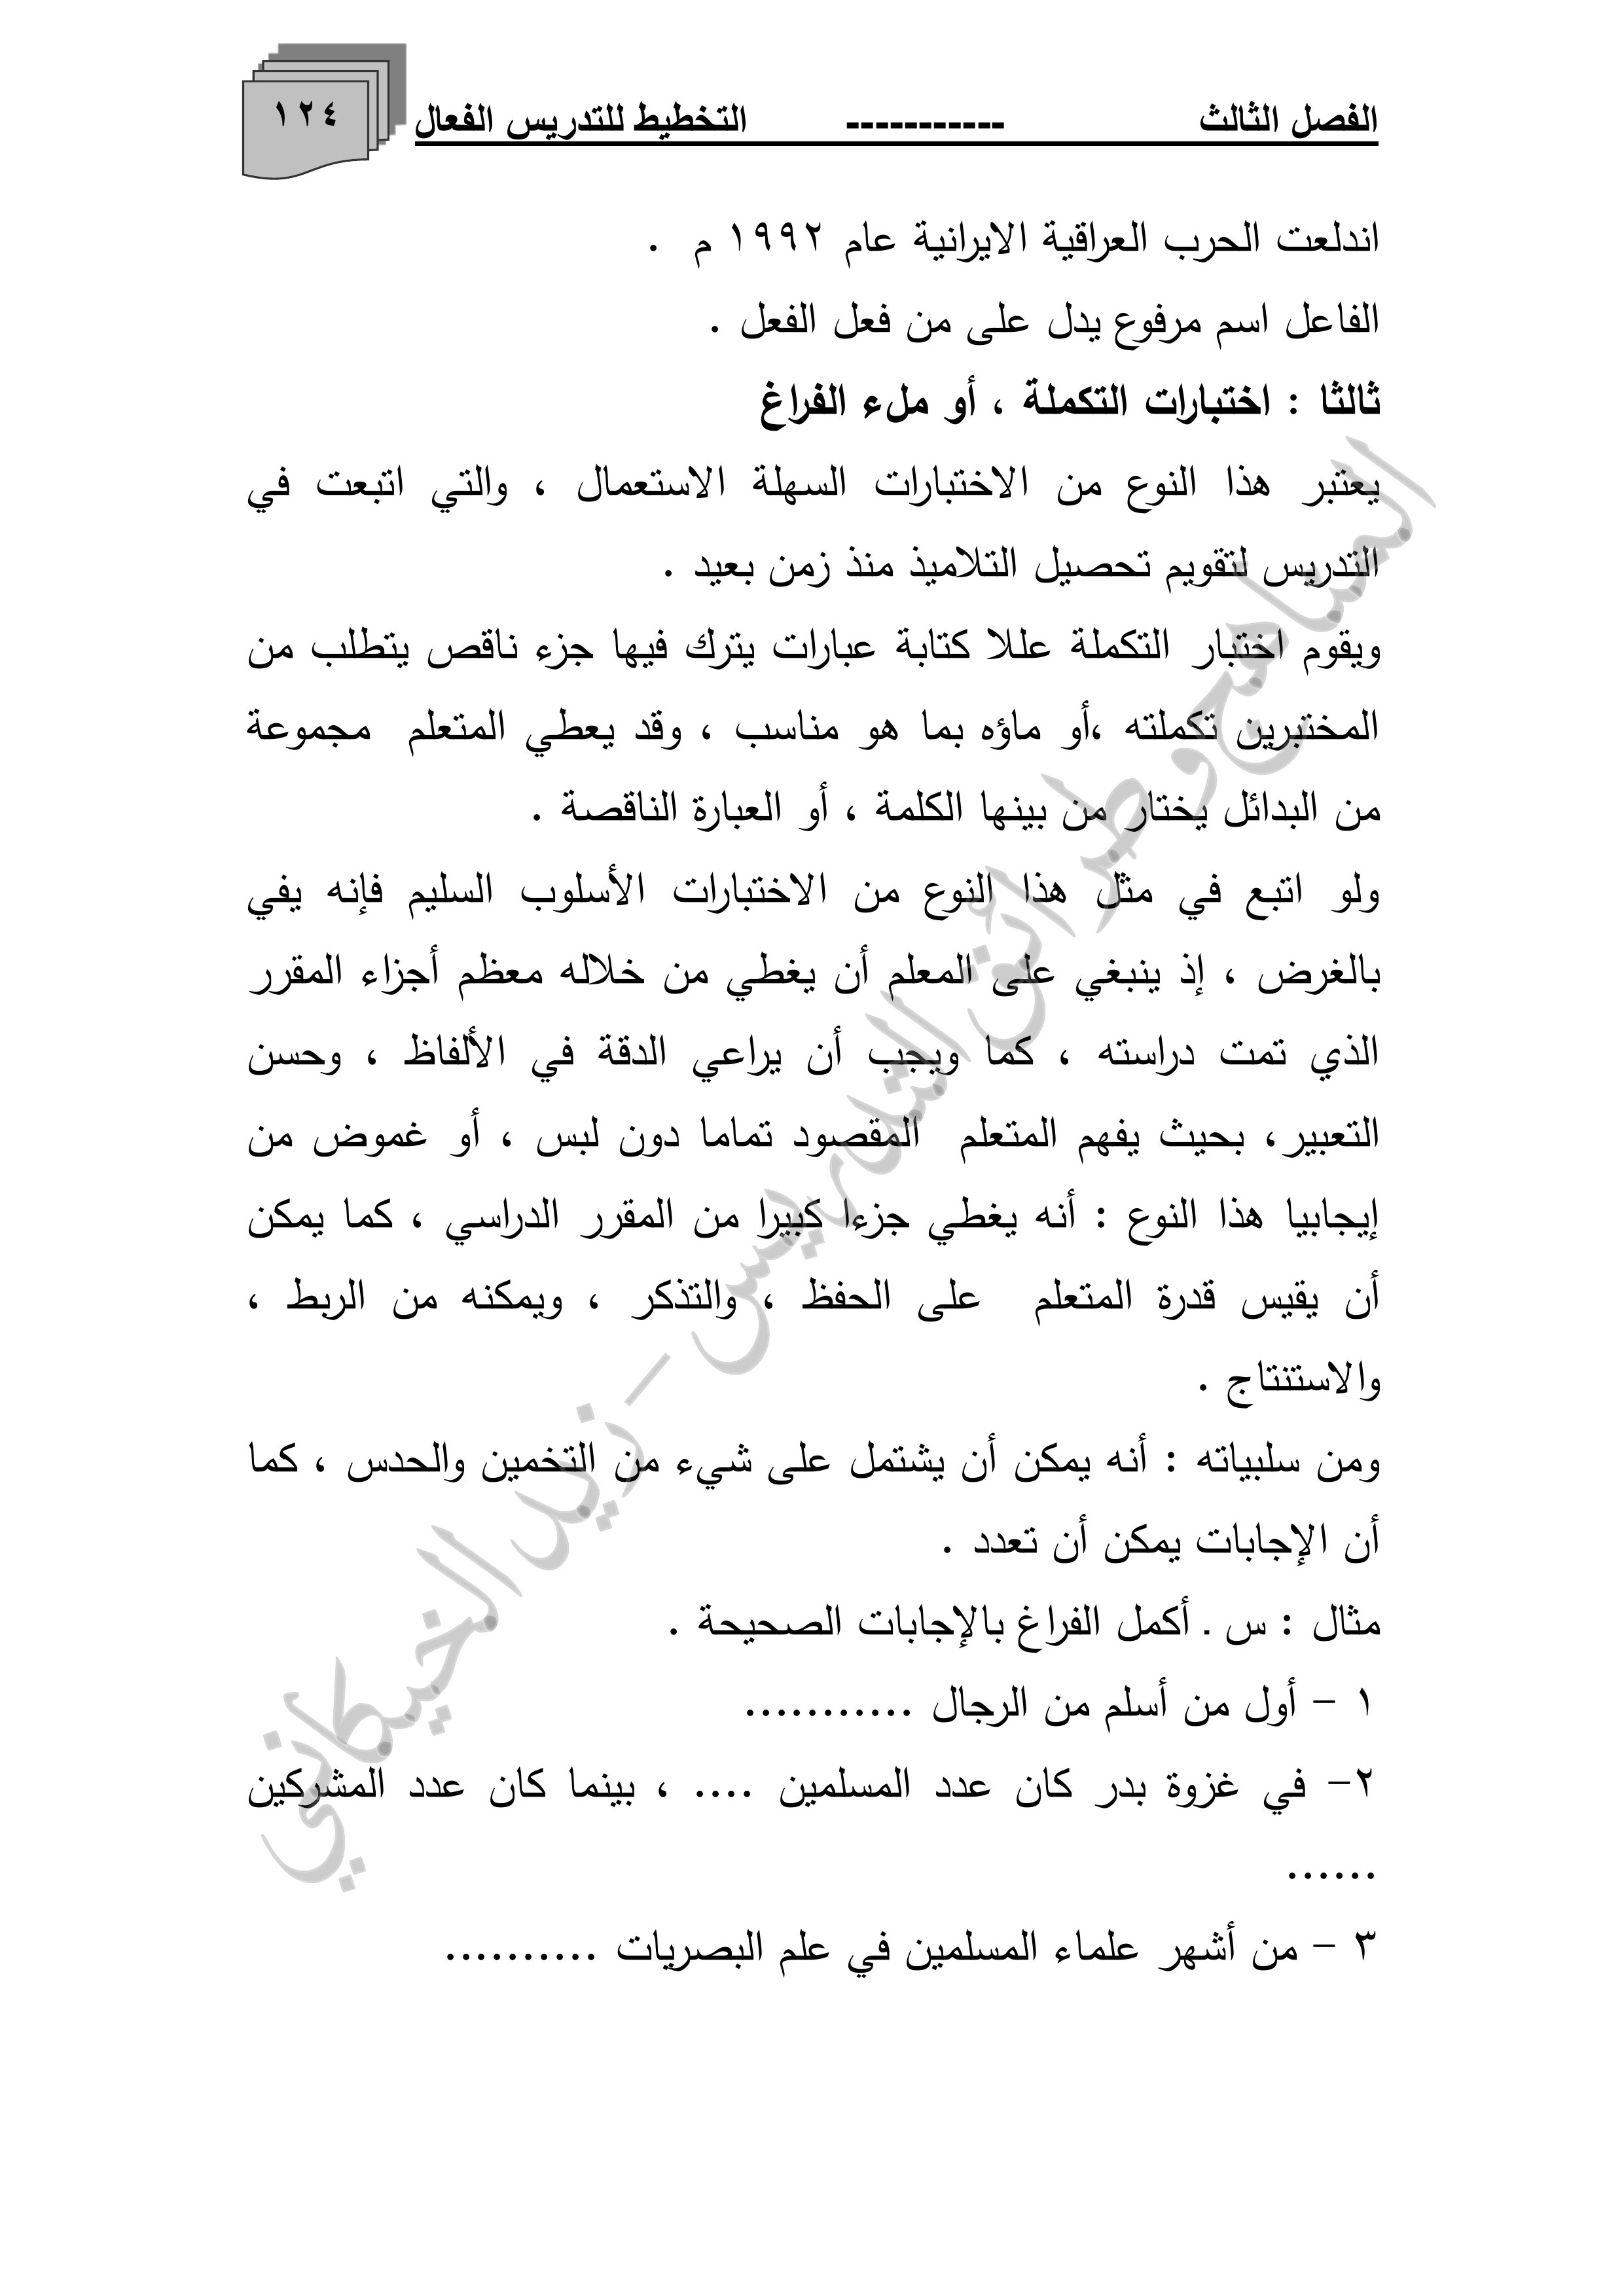 الفصل الثالث ----------- التخطيط للتدريس الفعال ١٢٤
اندلعت الحرب العراقية الايرانية عام ١٩٩٢ م .
الفاعل اسم مرفوع يدل على من فعل الفعل .
ثالثا : اختبارات التكملة ، أو ملء الفراغ
يعتبر هذا النوع من الاختبارات السهلة الاستعمال ، والتي اتبعت في
التدريس لتقويم تحصيل التلاميذ منذ زمن بعيد .
ويقوم اختبار التكملة عللا كتابة عبارات يترك فيها جزء ناقص يتطلب من
المختبرين تكملته ،أو ماؤه بما هو مناسب ، وقد يعطي المتعلم مجموعة
من البدائل يختار من بينها الكلمة ، أو العبارة الناقصة .
ولو اتبع في مثل هذا النوع من الاختبارات الأسلوب السليم فإنه يفي
بالغرض ، إذ ينبغي على المعلم أن يغطي من خلاله معظم أجزاء المقرر
الذي تمت دراسته ، كما ويجب أن يراعي الدقة في الألفاظ ، وحسن
التعبير، بحيث يفهم المتعلم المقصود تماما دون لبس ، أو غموض من
إيجابيا هذا النوع : أنه يغطي جزءا كبيرا من المقرر الدراسي ، كما يمكن
أن يقيس قدرة المتعلم على الحفظ ، والتذكر ، ويمكنه من الربط ،
والاستنتاج .
ومن سلبياته : أنه يمكن أن يشتمل على شيء من التخمين والحدس ، كما
أن الإجابات يمكن أن تعدد .
مثال : س ـ أكمل الفراغ بالإجابات الصحيحة .
١ – أول من أسلم من الرجال ...........
٢– في غزوة بدر كان عدد المسلمين .... ، بينما كان عدد المشركين
......
٣ – من أشهر علماء المسلمين في علم البصريات ..........
المناهج وطرائق التدريس – زيد الخيكاني